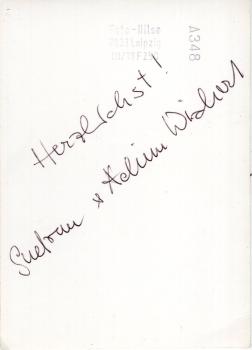 7031 Leipzig
III/18 F 250
A348
Herzlichst!
Gudrun & Achim Wichert